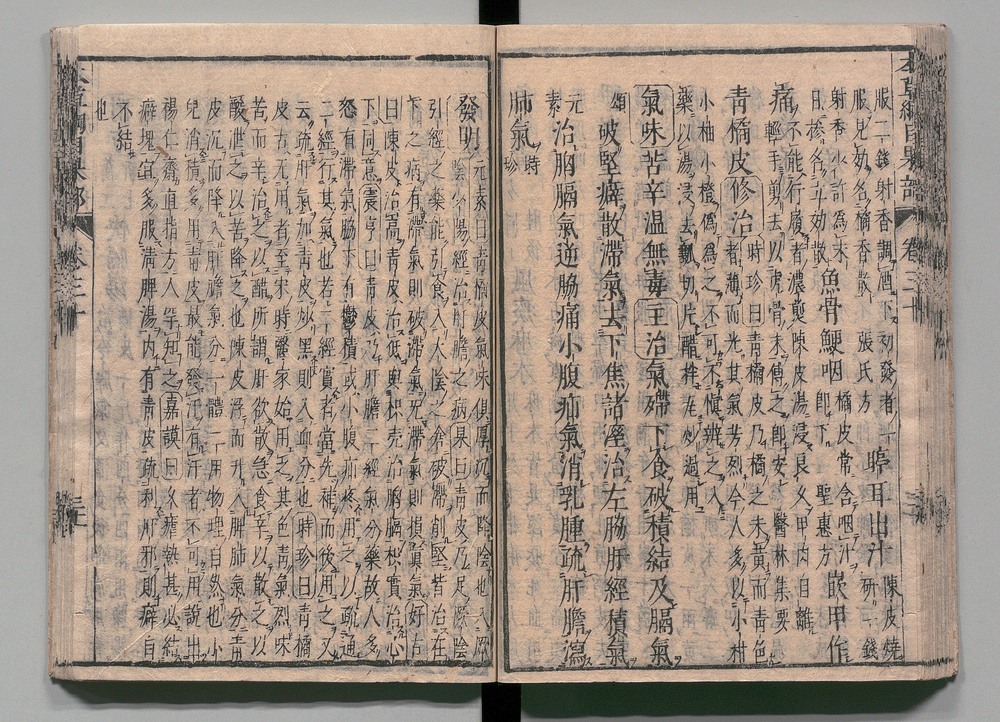 服二錢射香調酒下初發者一
服見効名橘香散張氏方
聤耳出汁
陳皮燒
研一錢
射香少許為末
日摻名立効散
魚骨鯁咽
橘皮常含咽汁
即下 聖惠方
嵌甲作
痛
不能行履者濃煎陳皮湯浸良久甲肉自離
輕手剪去以虎骨末傅之即安 醫林集要
青橘皮修治
時珍曰青橘皮乃橘之未黃而青色
者薄而光其氣芳烈今人多以小柑
小柚小橙偽為之不可不慎辨之入
藥以湯浸去瓤切片醋拌瓦炒過用
氣味苦辛溫無毒主治氣滯下食破積結及膈氣
頌
破堅癖散滯氣去下焦諸溼治左脇肝經積氣
元
素
治胸膈氣逆脇痛小腹疝氣消乳腫疏肝膽瀉
肺氣
時
珍
發明
元素曰青橘皮氣味俱厚沉而降陰也入厥
陰少陽經治肝膽之病杲曰青皮乃足厥陰
引經之藥能引食入太陰之倉破滯削堅皆治在
下之病有滯氣則破滯氣無滯氣則損真氣好古
曰陳皮治高青皮治低與枳壳治胸膈枳實治心
下同意震亨曰青皮乃肝膽二經氣分藥故人多
怒有滯氣脇下有鬱積或小腹疝疼用之以疏通
二經行其氣也若二經實者當先補而後用之又
云疏肝氣加青皮炒黑則入血分也時珍曰青橘
皮古无用者至宋時醫家始用之其色青氣烈味
苦而辛治之以醋所謂肝欲散急食辛以散之以
酸泄之以苦降之也陳皮浮而升入脾肺氣分青
皮沉而降入肝膽氣分一體二用物理自然也小
兒消積多用青皮最能發汗有汗者不可用說出
楊仁齋直指方人罕知之嘉謨曰久瘧熱甚必結
癖塊宜多服清脾湯內有青皮疏利肝邪則癖自
不結
也